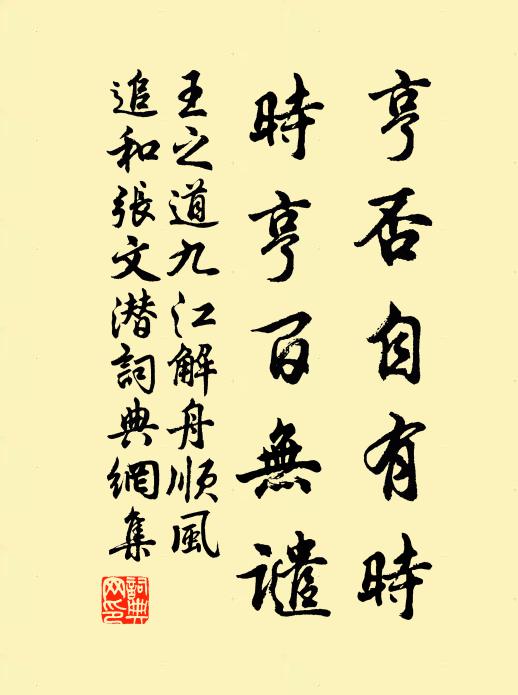 亨否自有時
時亨百無譴
王之道九江解舟順風
追和張文潜詞典網集
詞典网印